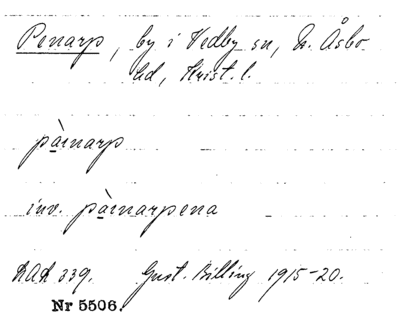 Penarp, by i Vedby sn, N. Åsbo
hd, Krist. l.
pàɪnarp
inv. pàɪnarpena
LAL 339. Gust. Billing 1915-20.
Nr 5506.